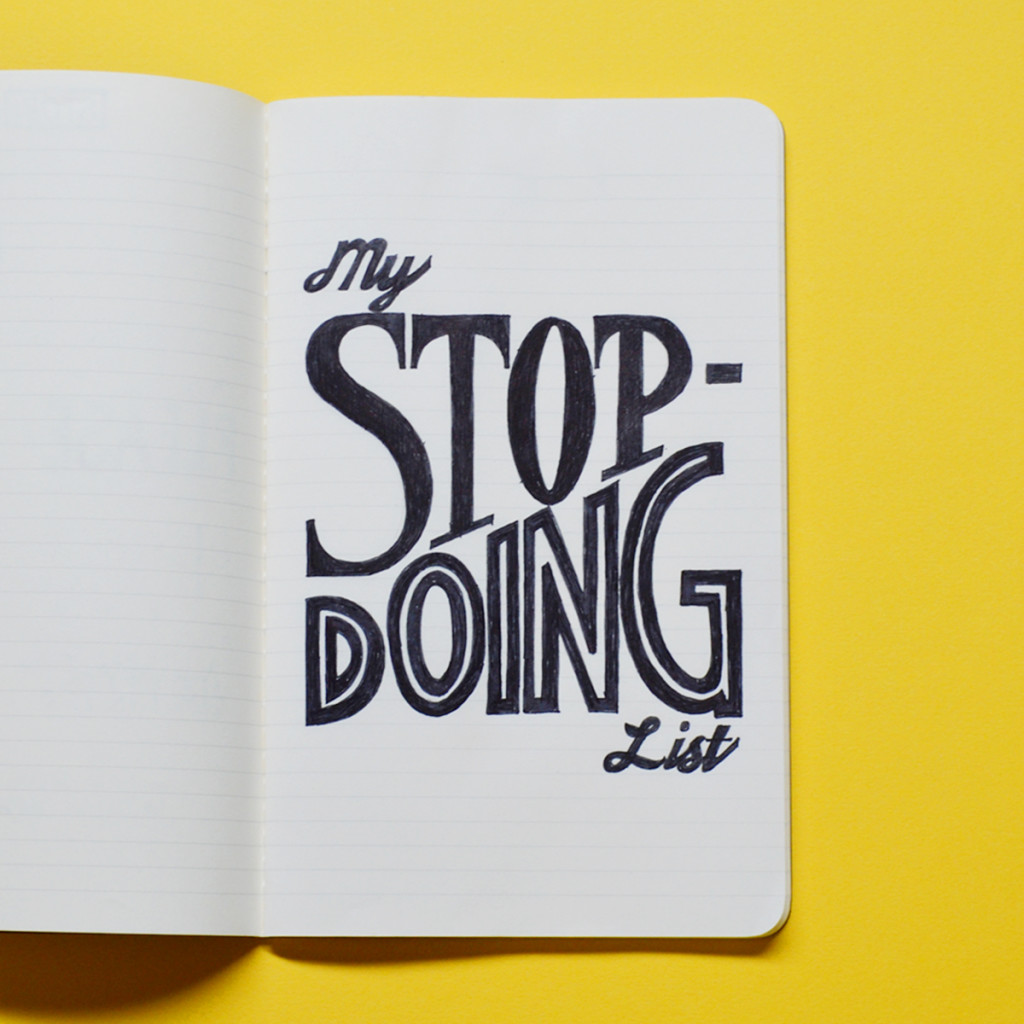 My
STOP-
DOING
List